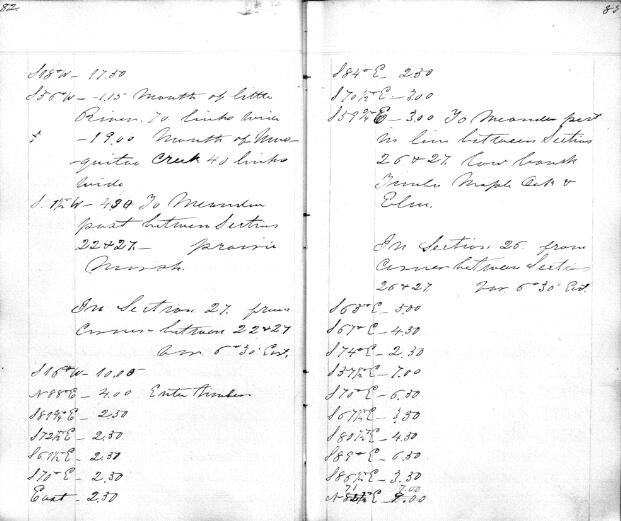 82.
S18°W - 17.50
S56°W - 1.15 Mouth of little
River. 70 links wide
- 19.00 Mouth of Mus-
-quitoe Creek 40 links
wide
S. W - 4.30 To Meander
post between Sections
22 & 27 - prairie
Marsh.
In Section 27. from
Corner between 22 & 27
Var. 6° 30' East.
S16°W - 10.00
N88°E - 4.00 Enter timber
E - 2.50
S72½E - 2.50
E - 2.50
S70°E - 2.50
East - 2.50
83
S84°E - 2.50
S70½E - 3.00
S59¾E - 3.00 To Meander post
in line between Sections
26 & 27. low bank
Timber Maple Oak &
Elm.
In Section 26 from
Corner between Section
26 & 27 Var. 6° 30' Est.
S65°E - 5.00
S67°E - 4.50
S74°E - 2.50
E - 7.00
S70°E - 6.50
S67½E - 3.50
E - 4.50
S89°E - 6.50
E - 3.50
E - 7.00